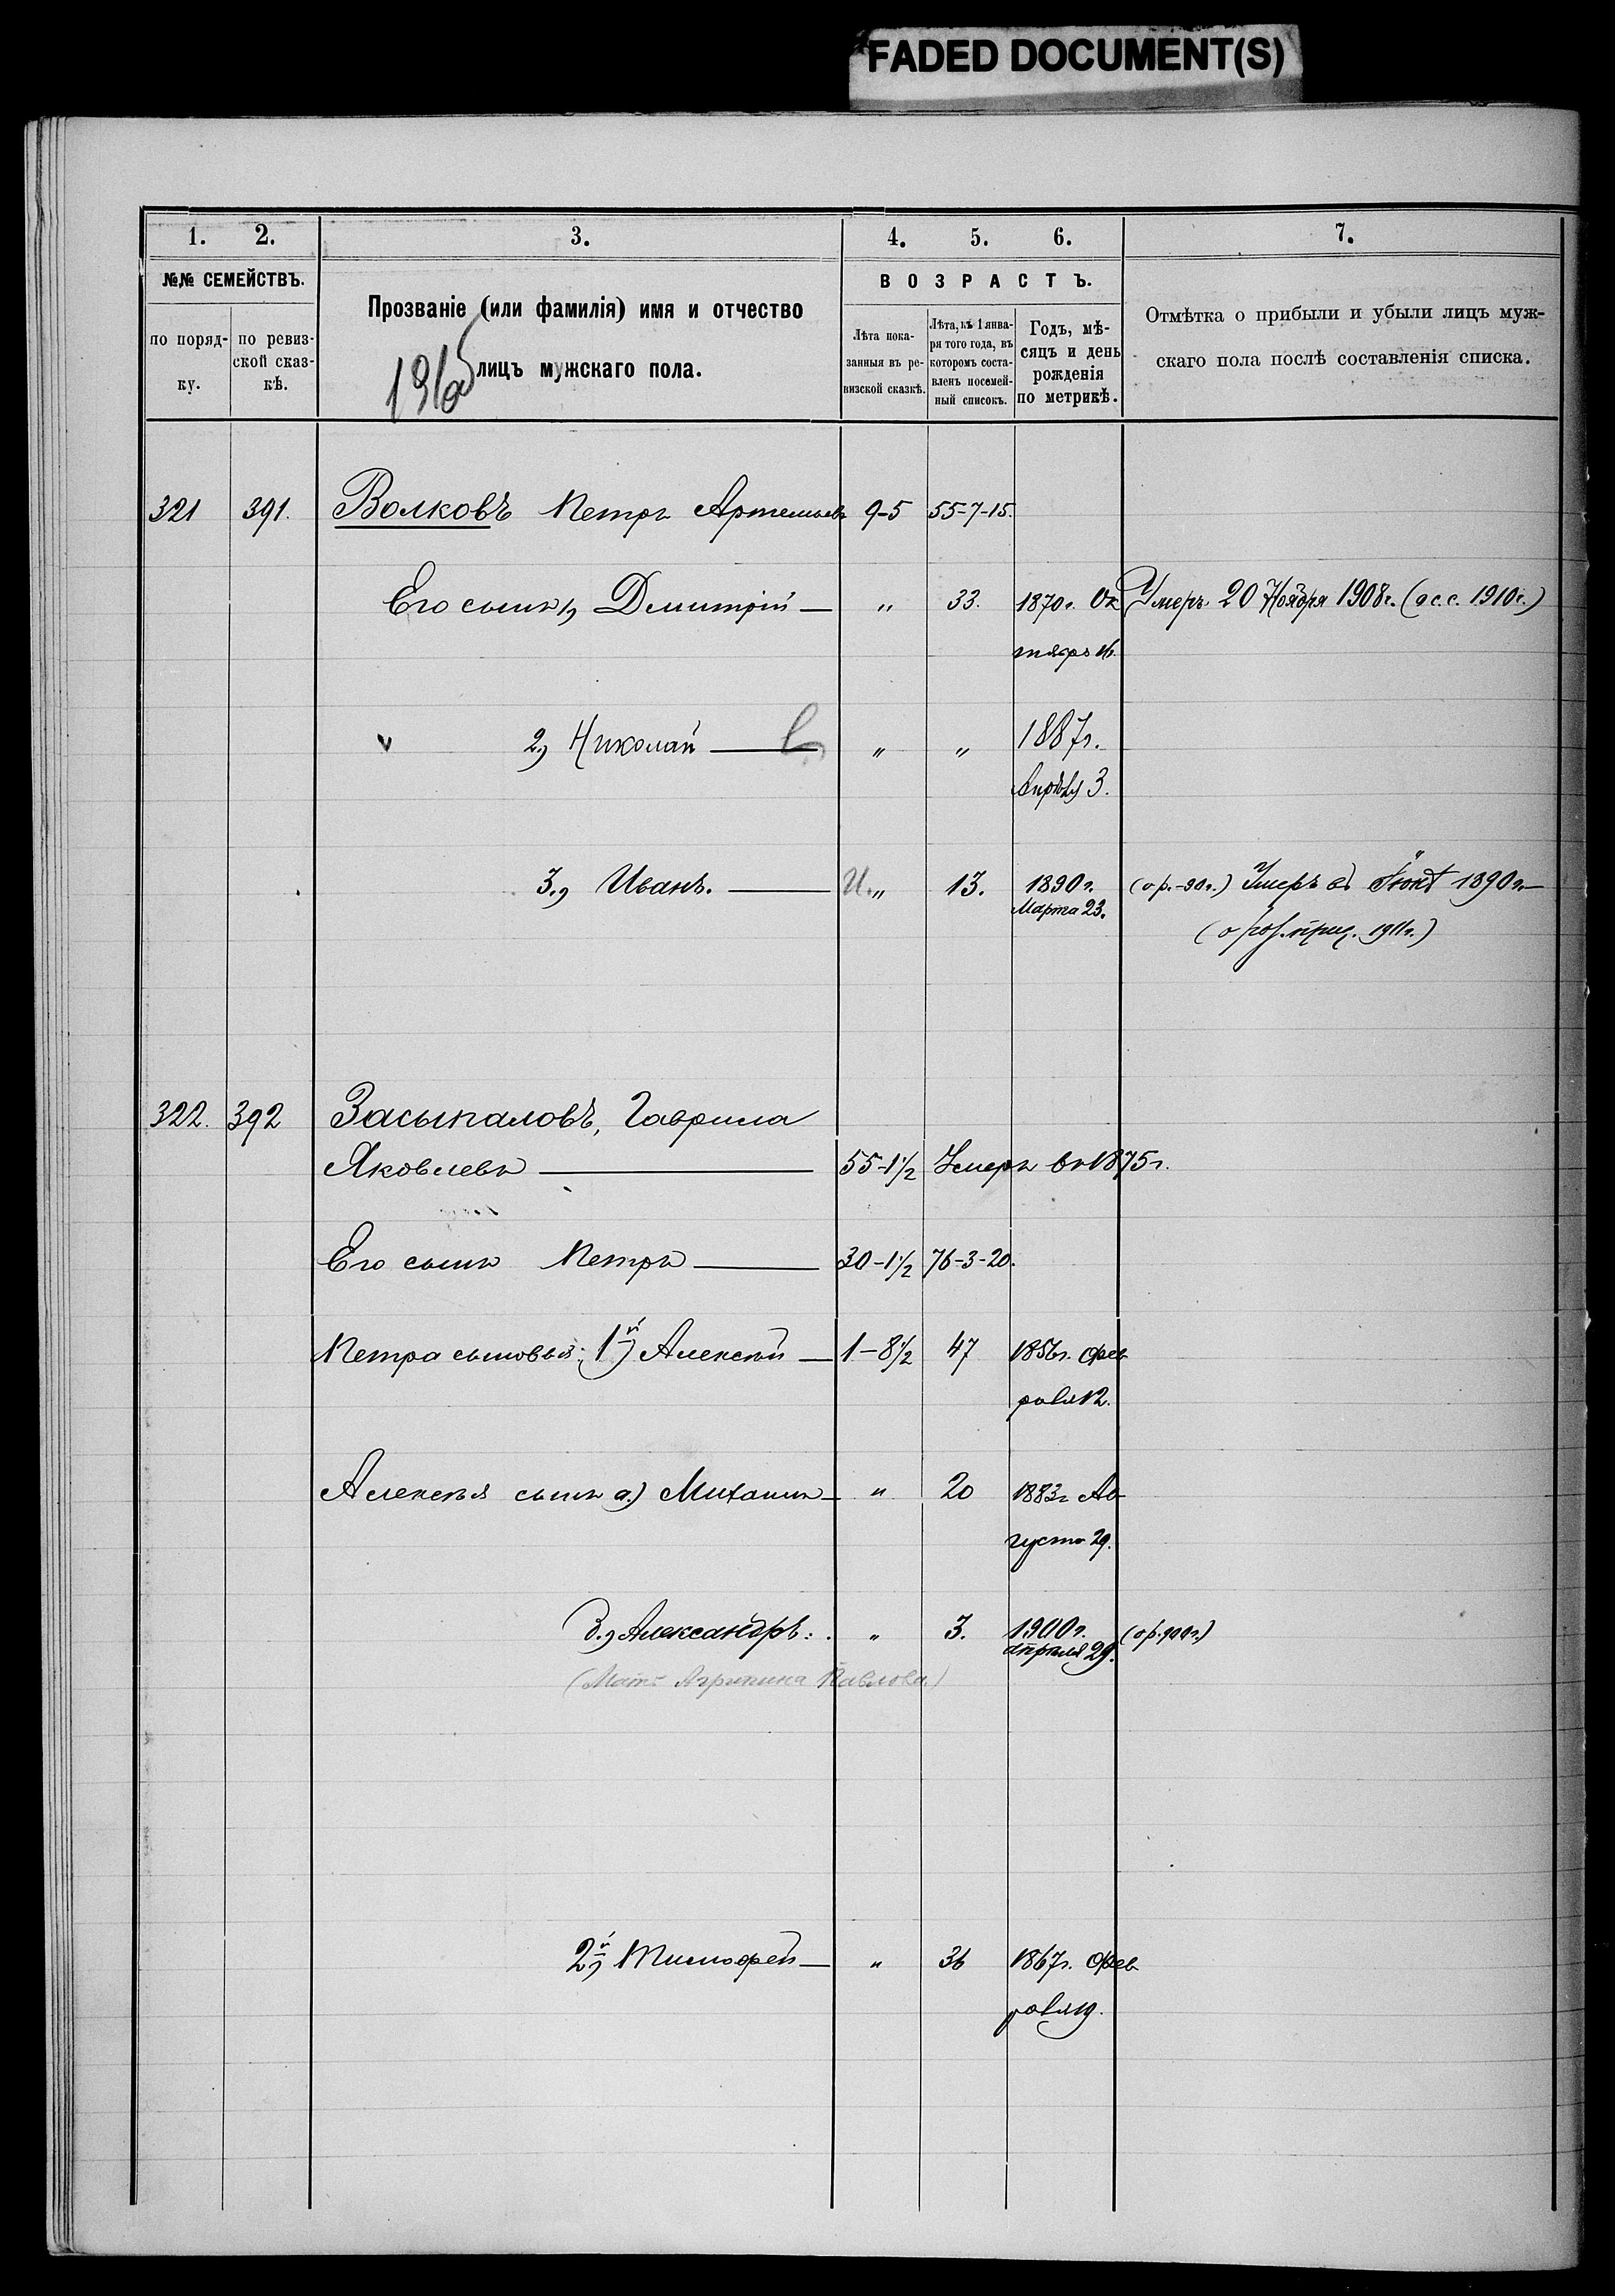 FADED DOCUMENT(S)
1. 2. 3. 4. 5. 6. 7.
№№ СЕМЕЙСТВЪ.
по поряд-
ку.
по ревиз-
ской сказ-
кѣ.
Прозваніе (или фамилія) имя и отчество
лицъ мужскаго пола.
ВОЗРАСТЪ.
Лѣта пока-
занныя въ ре-
визской сказкѣ.
Лѣта, къ 1 янва-
ря того года, въ
которомъ соста-
вленъ посемей-
ный списокъ.
Годъ, мѣ-
сяцъ и день
рожденія
по метрикѣ.
Отмѣтка о прибыли и убыли лицъ муж-
скаго пола послѣ составленія списка.
321 391. Волковъ Петръ Артемьевъ 9-5 55-7-15.
Его сынъ 1) Дмитрій — „ 33. 1870г. Ок Умеръ 20 Ноября 1908г. (ас.с. 1910г.)
тябр 16.
2) Николай — „ „ 1887г.
Апрѣля 3.
3.) Иванъ. — И. „ 13. 1890г. (ор.-90г.) Умеръ въ Іюнѣ 1890г.
Марта 23.
1911г.)
322. 392 Засыпаловъ, Гаврила
Яковлевъ — 55-1½ Умеръ въ 1875г.
Его сынъ Петръ — 30-1½ 76-3-20.
Петра сыновья: 1й) Алексѣй — 1-8½ 47 1856г. Фев
раля 12.
Алексѣя сынъ а.) Михаилъ — „ 20 1883г. Ав
густа 29.
Александръ: „ 3. 1900г. (ор. 900г.)
апрѣля 29.
(Мать Агрипина Павлова)
2й) Тимофей — „ 36 1867г. Фев
раля 19.